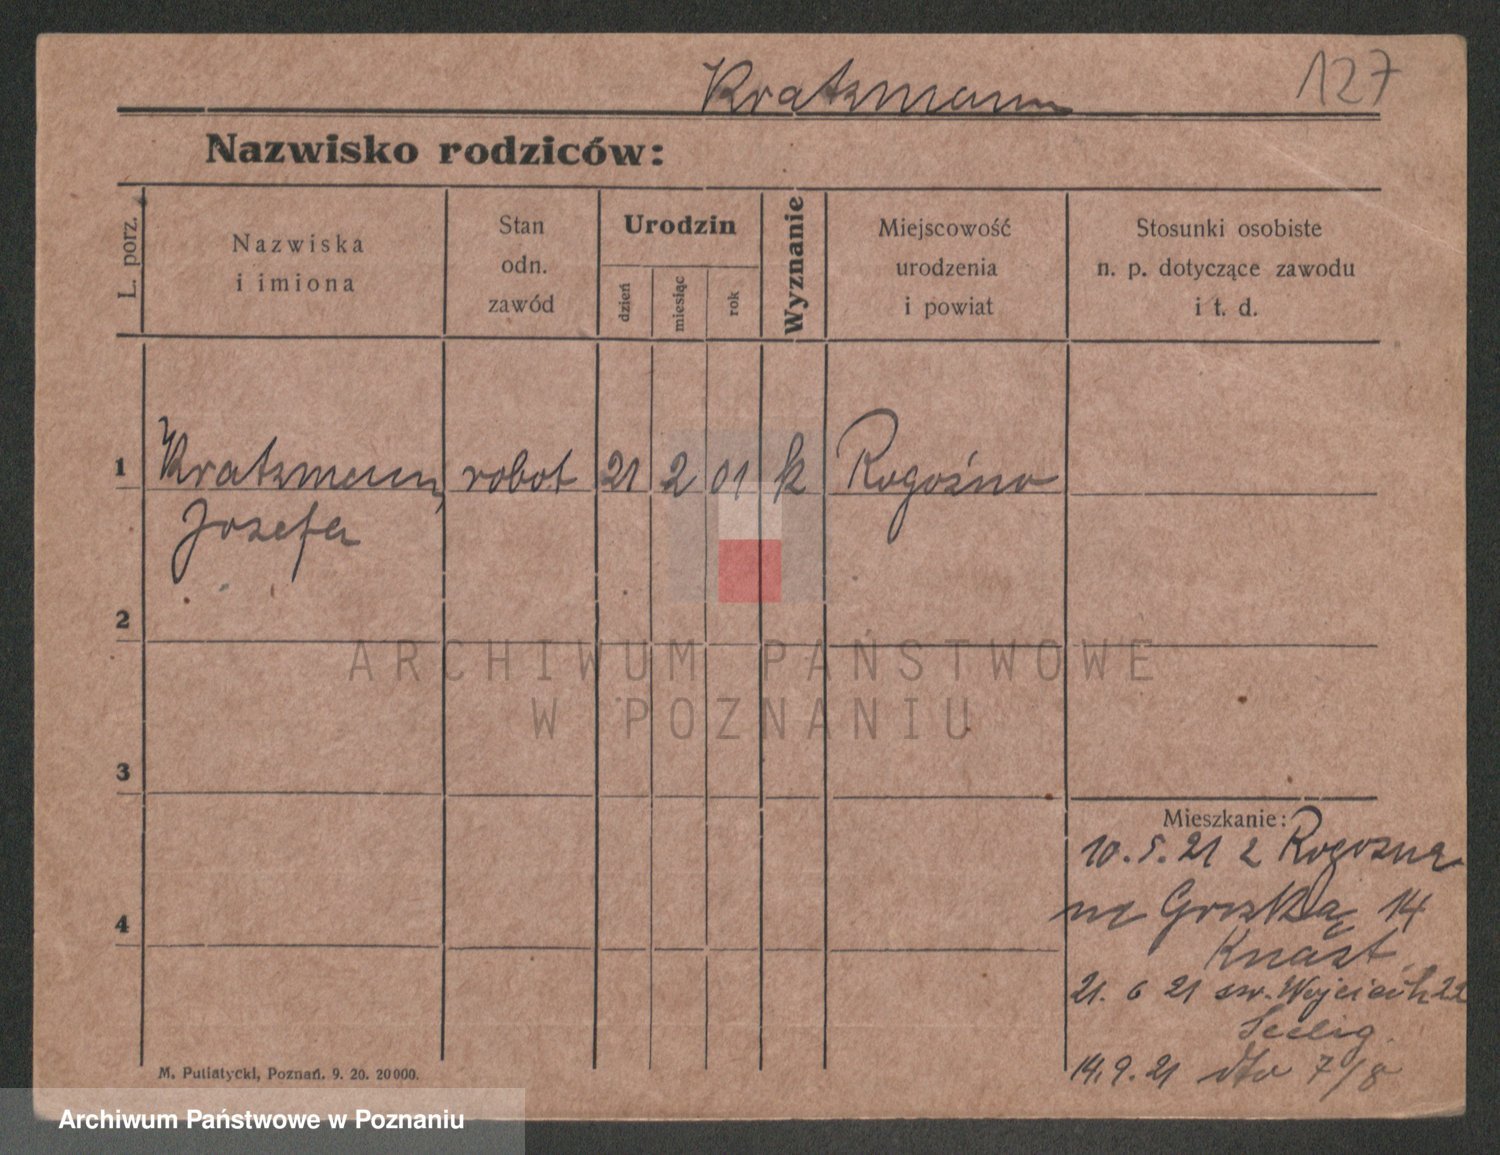 Kratzmann
127
Nazwisko rodziców:
L. porz.
Nazwiska
i imiona
Stan
odn.
zawód
Urodzin
dzień
miesiąc
rok
Wyznanie
Miejscowość
urodzenia
i powiat
Stosunki osobiste
n. p. dotyczące zawodu
i t. d.
1 Kratzmann, robot 21 2 01 k Rogoźno
Josefa
2
3
4
Mieszkanie:
10.5.21 z Rogozna
na 14
Knast
21. 6 21 św. Wojciech 22
Seelig
14.9.21 dto 7/8
M. Putiatycki, Poznań. 9. 20. 20000.
ARCHIWUM PAŃSTWOWE
W POZNANIU
Archiwum Państwowe w Poznaniu